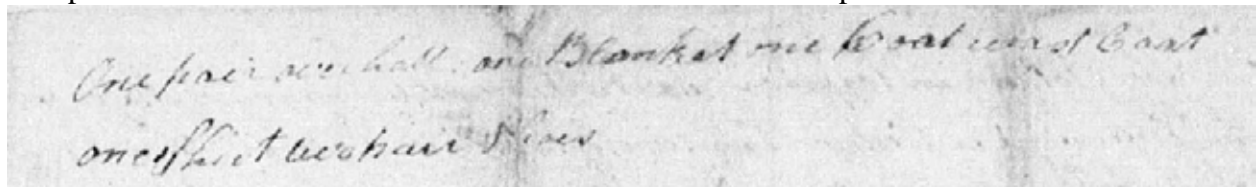 One pair overhalls one Blanket one Coat wast Coat
one Shirt two pair Shoes